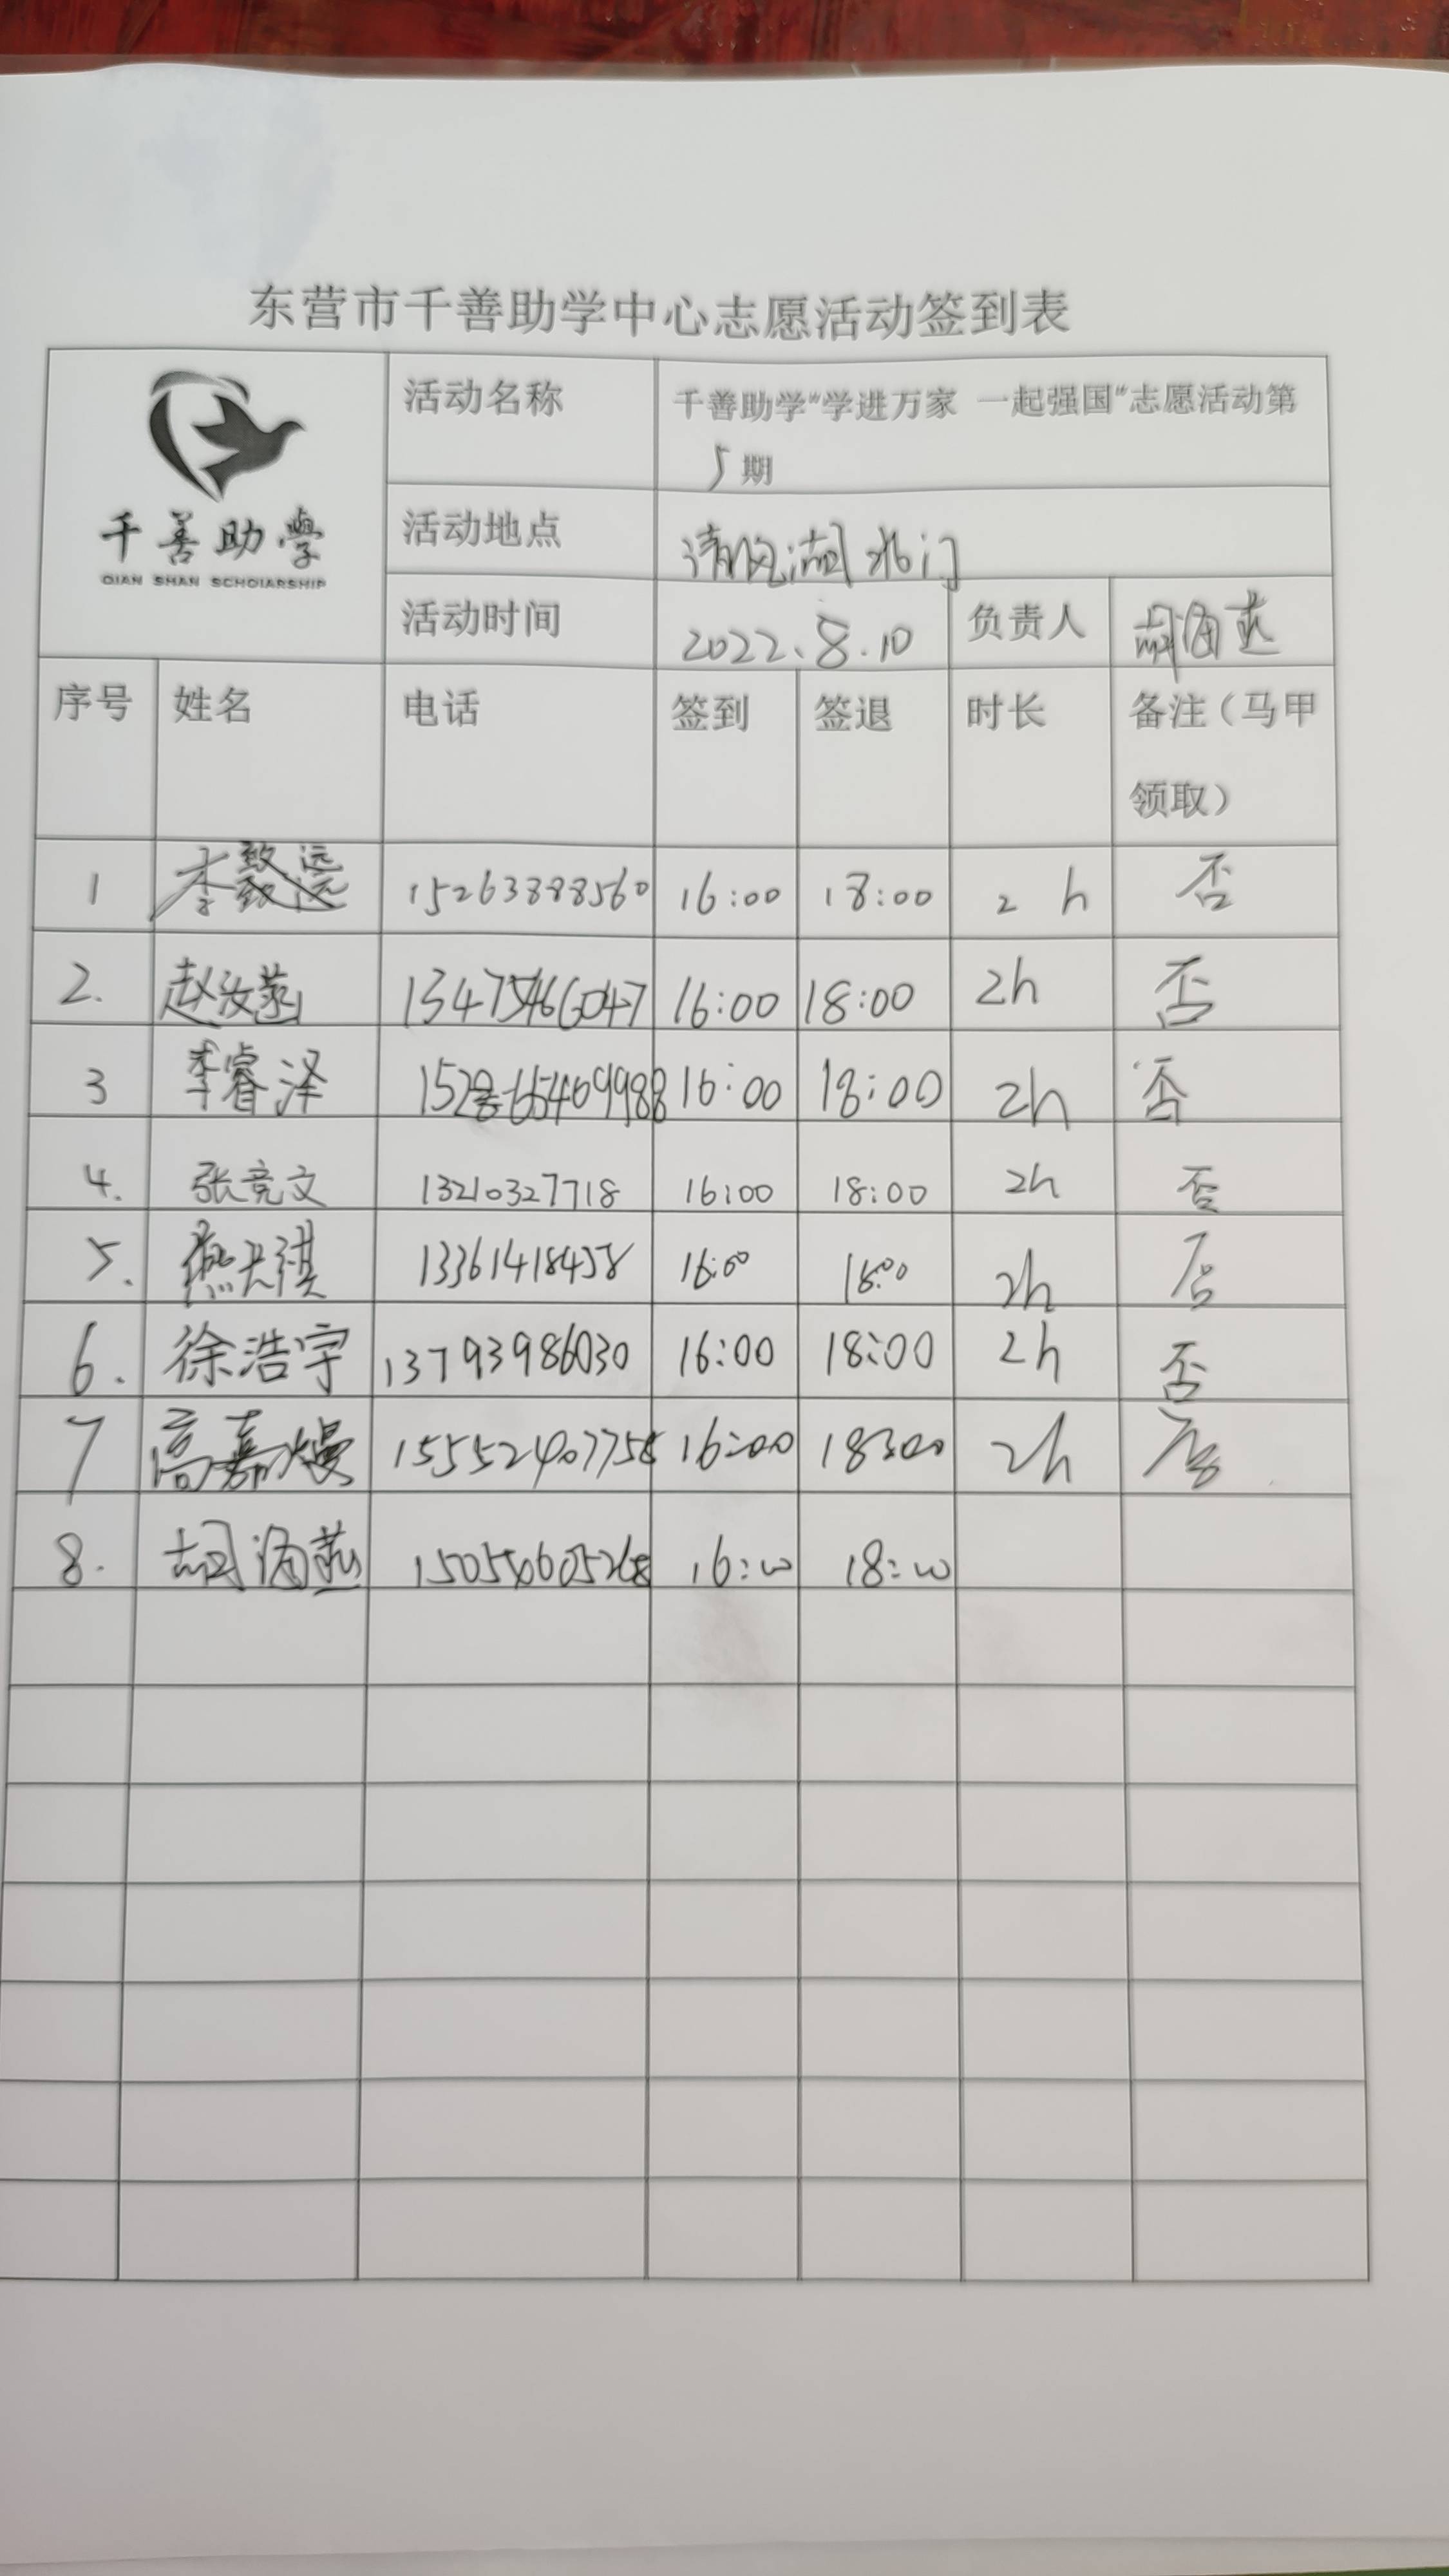 东营市千善助学中心志愿活动签到表
千善助学
QIAN SHAN SCHOLARSHIP
活动名称 千善助学"学进万家 一起强国"志愿活动第
5 期
活动地点 清风湖北门
活动时间 2022.8.10 负责人 胡海燕
序号 姓名 电话 签到 签退 时长 备注（马甲
领取）
1 李致远 15263888560 16:00 18:00 2 h 否
2. 赵汝菡 13475466047 16:00 18:00 2h 否
3 李睿泽 16:00 18:00 2h 否
4. 张竞文 13210327718 16:00 18:00 2h 否
5. 燕天祺 13361418458 16:00 18:00 2h 否
6. 徐浩宇 13793986030 16:00 18:00 2h 否
7 高嘉熳 15552407758 16:00 18:00 2h 否
8. 胡海燕 16:00 18:00